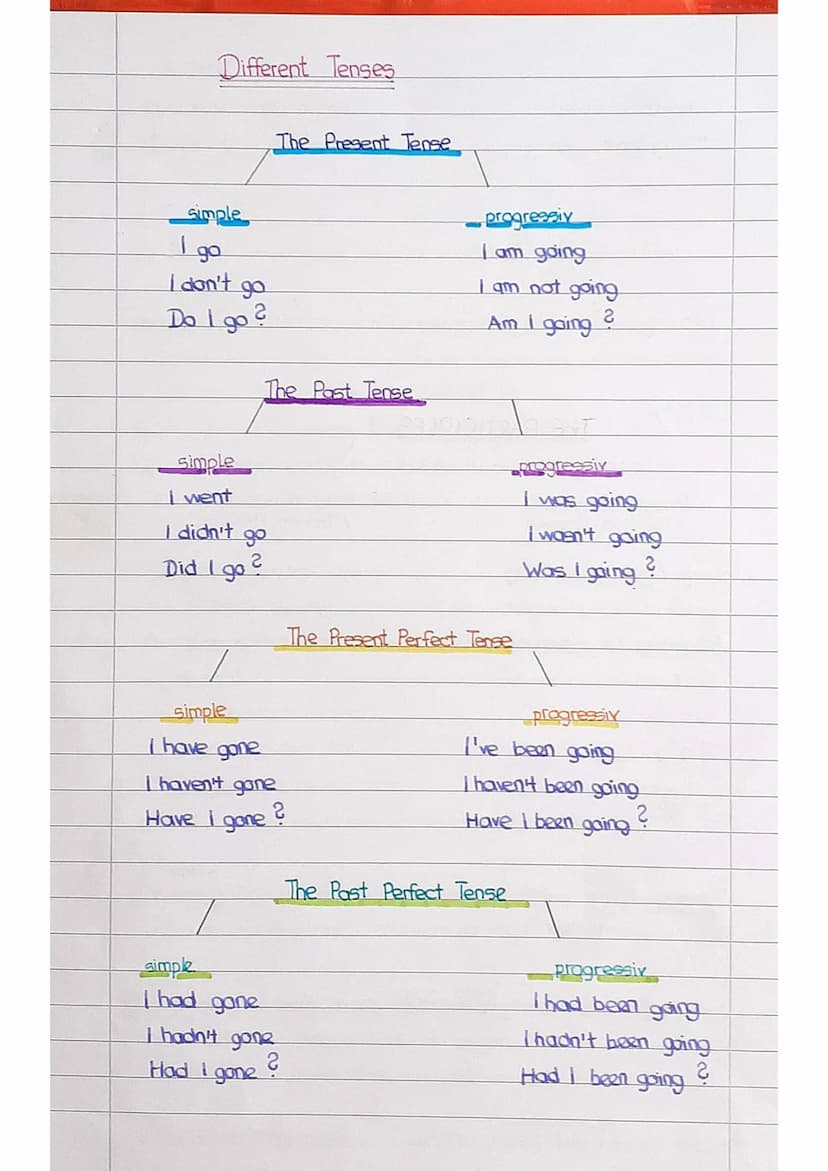 Different Tenses
The Present Tense
simple
I go
I don't go
Do I go?
progressiv
I am going
I am not going
Am I going?
The Past Tense
simple
I went
I didn't go
Did I go?
progressiv
I was going
I wasn't going
Was I going?
The Present Perfect Tense
simple
I have gone
I haven't gone
Have I gone?
progressiv
I've been going
I haven't been going
Have I been going?
The Past Perfect Tense
simple
I had gone
I hadn't gone
Had I gone?
progressiv
I had been going
I hadn't been going
Had I been going?